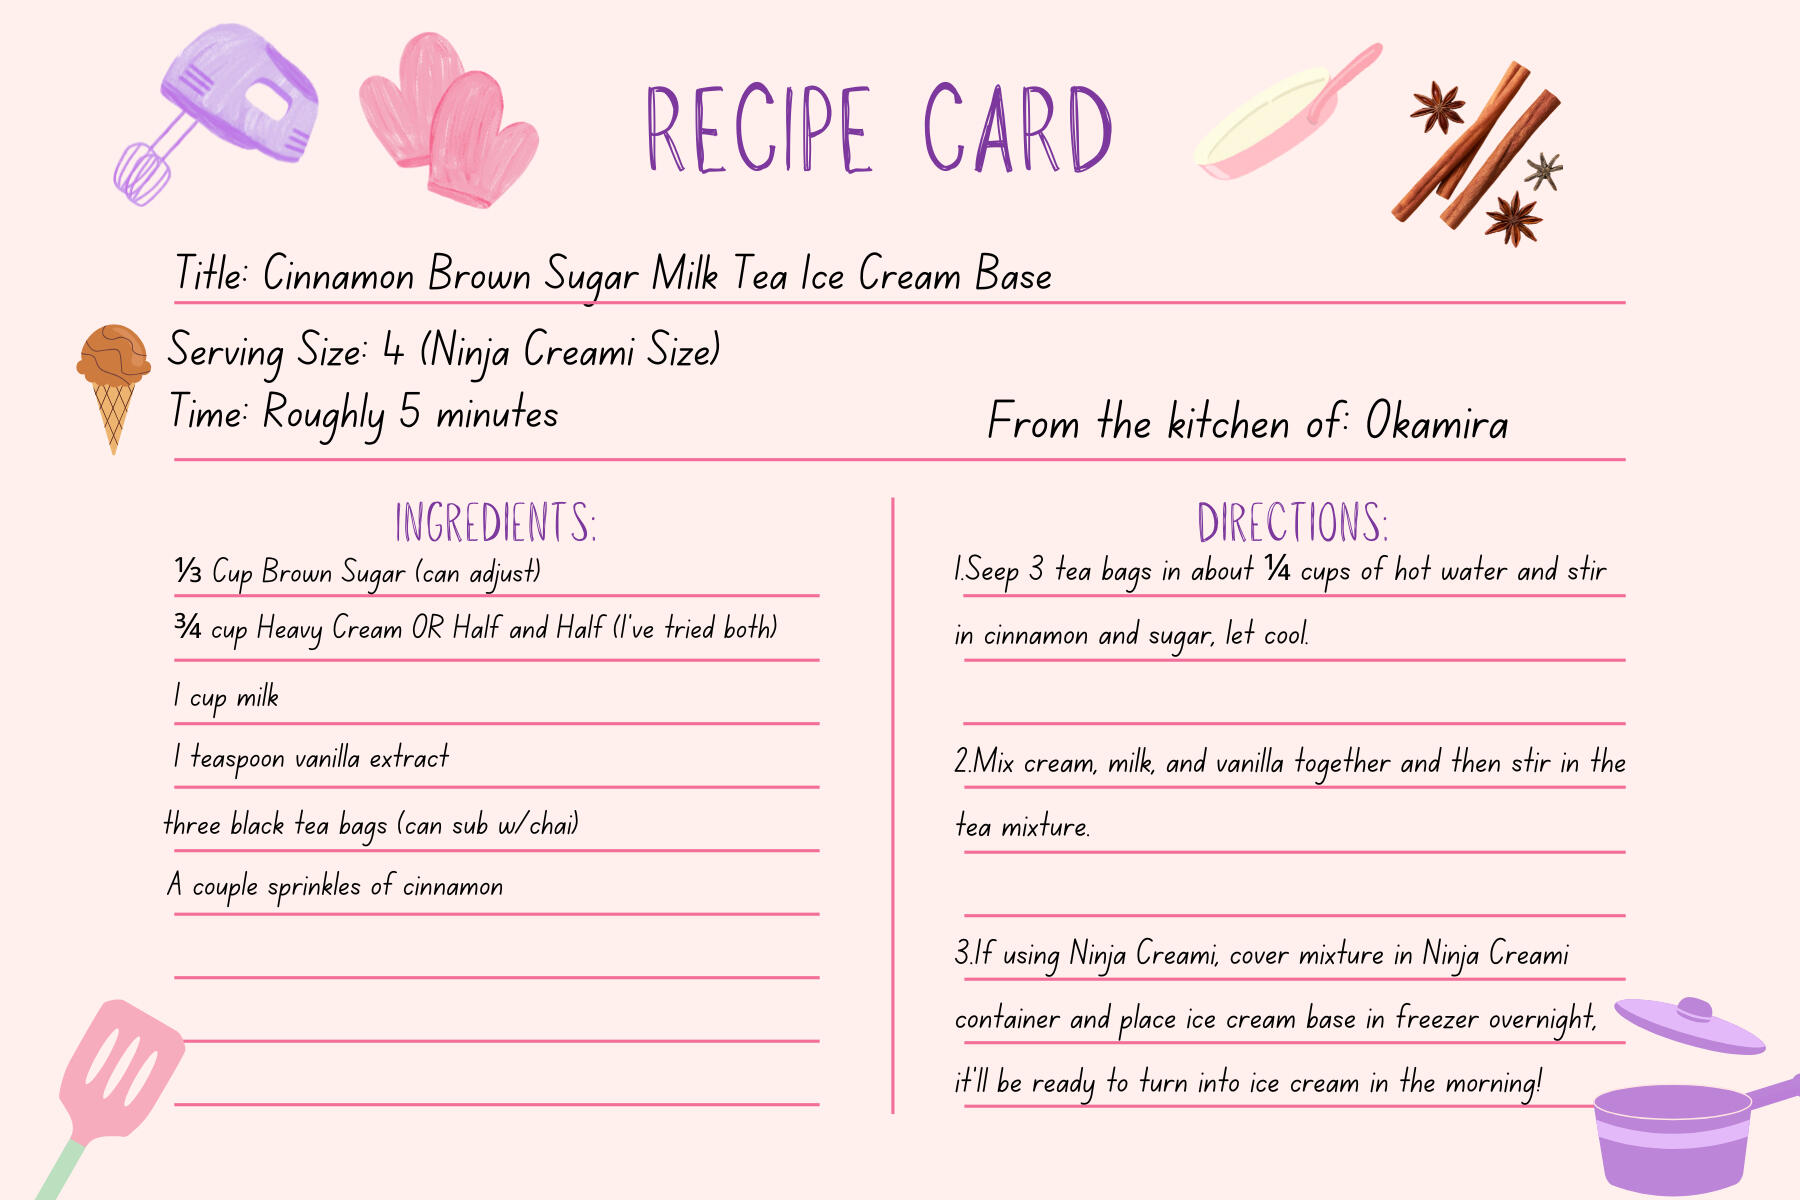 RECIPE CARD
Title: Cinnamon Brown Sugar Milk Tea Ice Cream Base
Serving Size: 4 (Ninja Creami Size)
Time: Roughly 5 minutes
From the kitchen of: Okamira
INGREDIENTS:
⅓ Cup Brown Sugar (can adjust)
¾ cup Heavy Cream OR Half and Half (I've tried both)
1 cup milk
1 teaspoon vanilla extract
three black tea bags (can sub w/chai)
A couple sprinkles of cinnamon
DIRECTIONS:
1.Seep 3 tea bags in about ¼ cups of hot water and stir
in cinnamon and sugar, let cool.
2.Mix cream, milk, and vanilla together and then stir in the
tea mixture.
3.If using Ninja Creami, cover mixture in Ninja Creami
container and place ice cream base in freezer overnight,
it'll be ready to turn into ice cream in the morning!